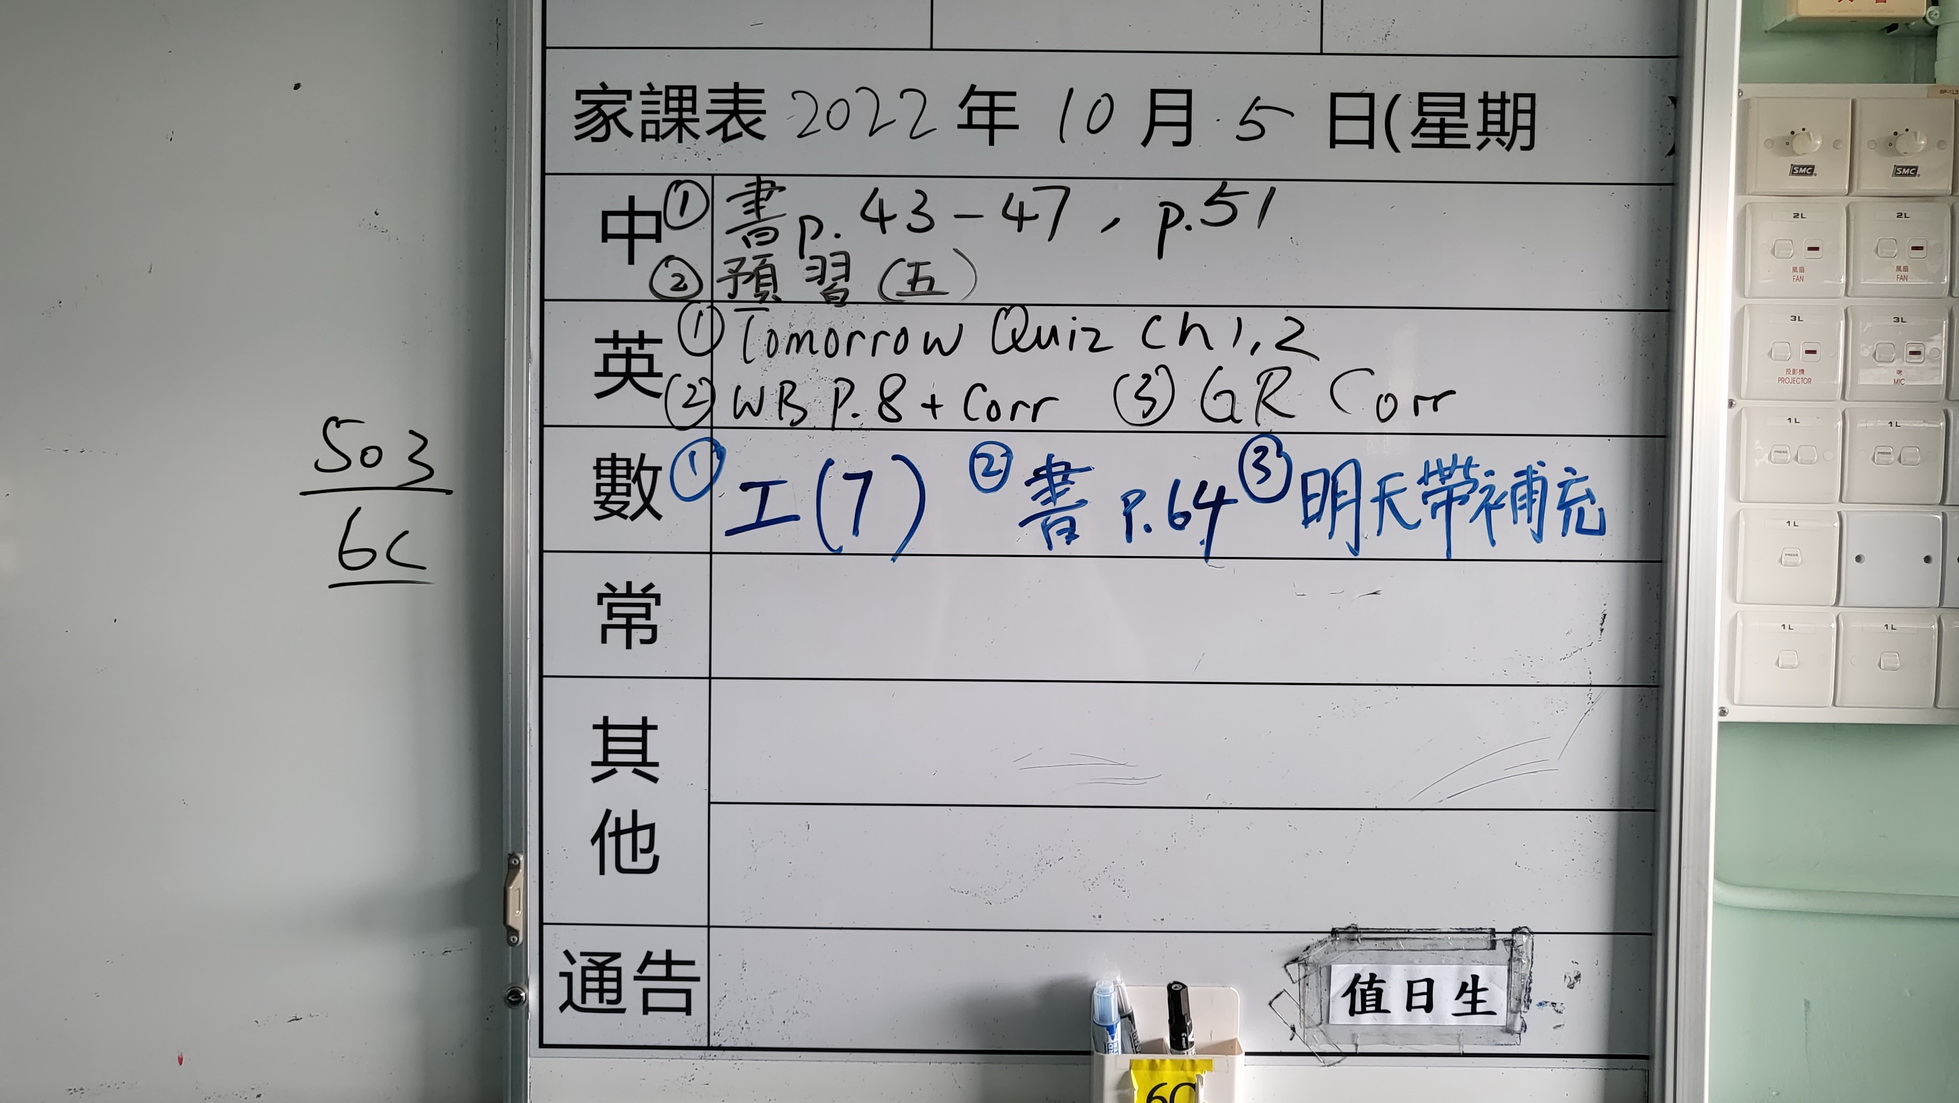 家課表 2022 年 10 月 5 日(星期 )
中 ① 書 p. 43-47, p.51
② 預習 (五)
英 ① Tomorrow Quiz Ch 1, 2
② WB P. 8 + Corr ③ GR Corr
數 ① 工(7) ② 書 P.64 ③ 明天帶補充
常
其他
通告
值日生
503
6C
6C
SMC
SMC
2L
風扇
FAN
2L
風扇
FAN
3L
投影機
PROJECTOR
3L
咪
MIC
1L
1L
1L
1L
1L